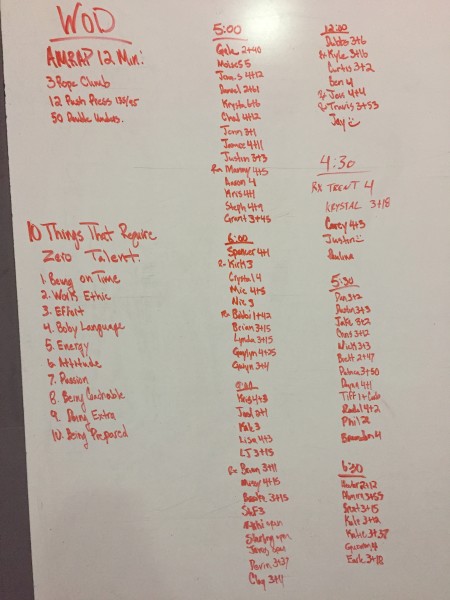 WOD
AMRAP 12 Min:
3 Rope Climb
12 Push Press 135/95
50 Double Unders.
10 Things That Require
Zero Talent:
1. Being on Time
2. Work Ethic
3. Effort
4. Body Language
5. Energy
6. Attitude
7. Passion
8. Being Coachable
9. Doing Extra
10. Being Prepared
5:00
2+40
Moises 5
4+12
Daniel 2+61
Krysta 6+6
Chad 4+12
Jenn 3+1
James 4+11
Justin 3+3
Rx Manny 4+5
Aaron 4
Kris 4+1
Steph 4+9
Grant 3+45
6:00
Spencer 4+1
Rx Kirk 3
Crystal 4
Mic 4+8
Nic 3
Rx Bobbi 1+42
Brian 3+15
Lynda 3+15
Gaylyn 4+25
3+4
9:00
4+3
2+1
Kat 3
Lisa 4+3
LJ 3+15
Rx Bevan 3+11
4+15
Brooke 3+15
3
3+37
Clay 3+4
12:00
Dubbs 3+6
Rx Kyle 3+16
Curtis 3+2
Ben 4
Rx Jess 4+4
Rx Travis 3+53
Jay
4:30
RX TRENT 4
KRYSTAL 3+18
Corey 4+3
Justin
Paulina
5:30
Dan 3+2
Dustin 3+3
Jake 8+2
Chris 3+12
Nick 3+3
Brett 2+47
3+50
4+1
Tiff 1+
4+2
Phil
Brandon 4
6:30
2+12
3+55
3+15
Kate 3+12
Katie 3+37
3+12